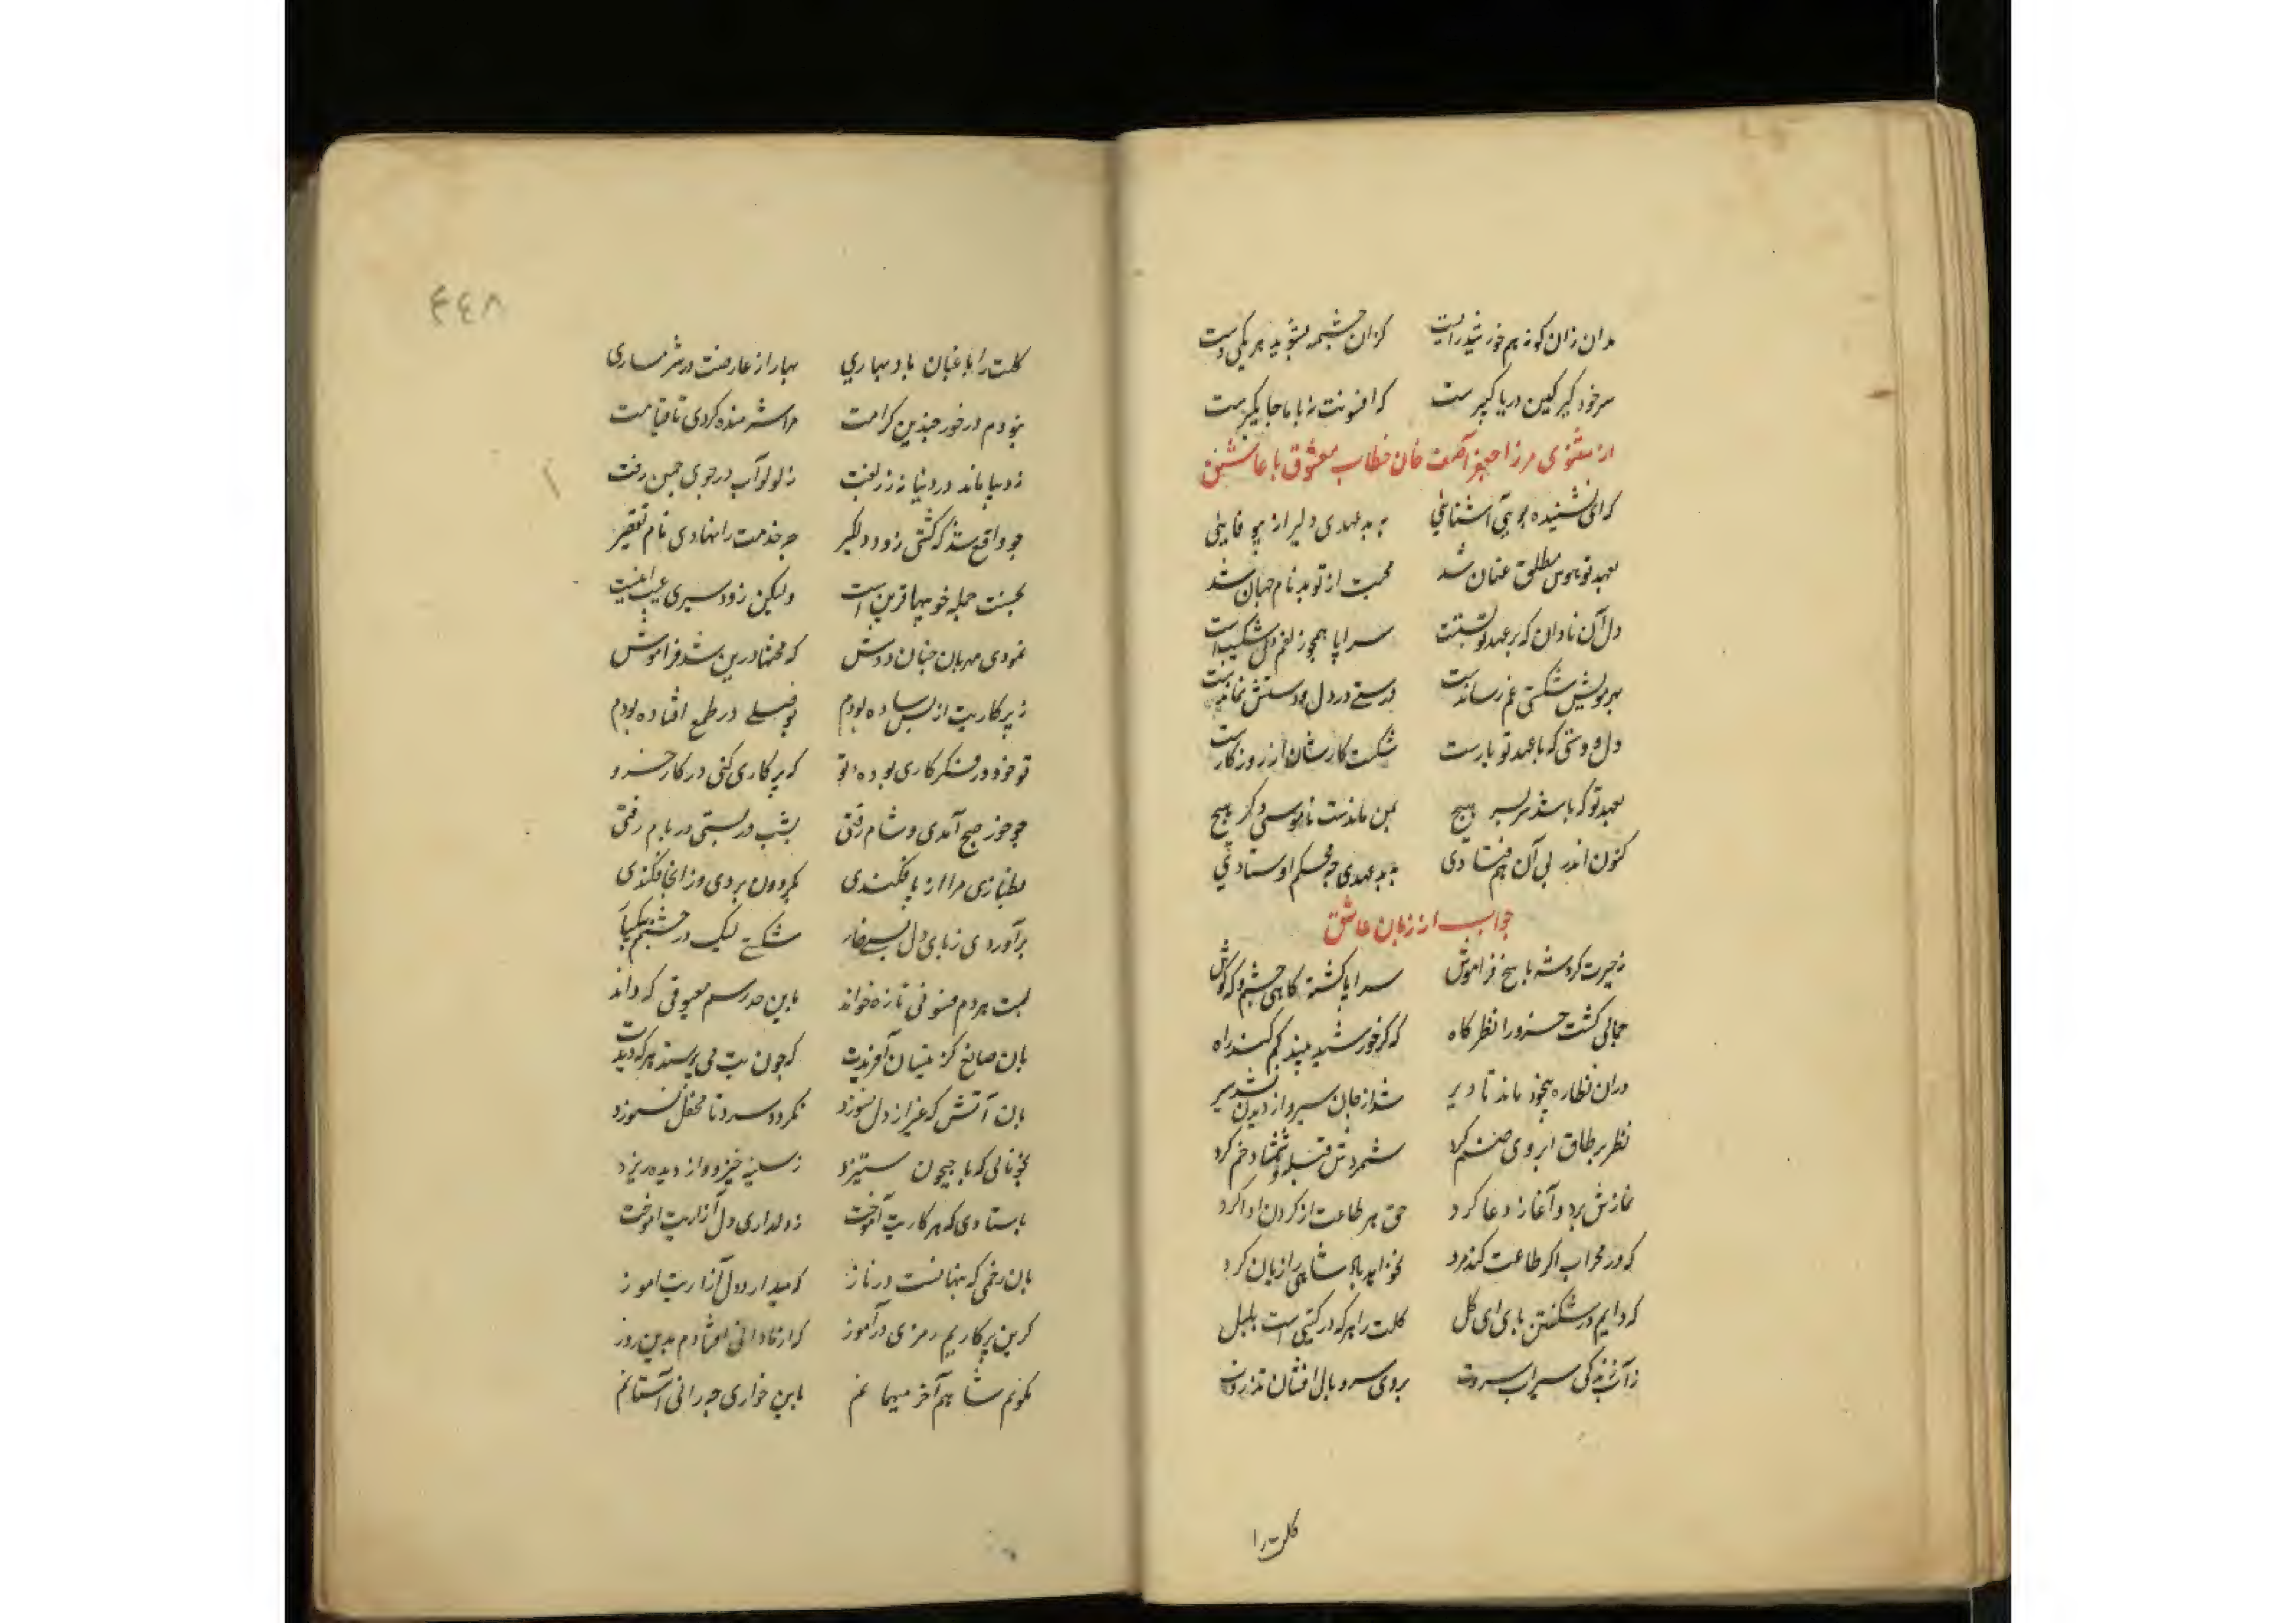 مدان زان کونه هم خورشید را پست کزان چشمه بشوید هر یکی دست
سر خود گیر کین دریا گهر ست که افسونت نه با ما جایگیرست
از مثنوی مرزا جعفر آصف خان خطاب معشوق با عاشق
که ای نشنیده بوی آشنایی به بد عهدی دلیر از بیوفایی
بعهد تو هوس مطلق عنان شد محبت از تو بد نام جهان شد
دل آن نادان که بر عهد تو بستست سراپا همچو زلفم دل شکستست
بهر مویش شکستی غم رساندست درستی در دل و دستش نماندست
دل و دستی که با عهد تو یارست شکست کارشان از روزگارست
بعهد تو که باشد سر بسر هیچ بمن ماندست ناموسی و گر هیچ
کنون اندر پی آن هم فتادی به بد عهدی چه محکم اوستادی
جواب از زبان عاشق
ز حیرت کرد شه پاسخ فراموش سراپا گشته گاهی چشم و گه گوش
جمالی گشت خسرو را نظرگاه که گر خورشید بیند گم کند راه
در ان نظاره بیخود ماند تا دیر شد از جان سیر و از دیدن نشد سیر
نظر بر طاق ابروی صنم کرد شمردش قبله و شمشاد خم کرد
نمازش برد و آغاز دعا کرد حق هر طاعت از کردن ادا کرد
که در محراب اگر طاعت کند مرد نخواهد پادشاهی را زیان کرد
که دایم در شکفتن بادی ای گل گلت را هر که در گیتی است بلبل
ز آب زندگی سیراب سروت بروی سرو بال افشان تذروت
گلت را
۴۴۸
گلت را باغبان باد بهاری بهار از عارضت در شرمساری
نبودم در خور چندین کرامت مرا شرمنده کردی تا قیامت
ز دیبا ماند در دنیا نه زربفت ز لولو آب در جوی چمن رفت
چو واقع شد که گشتی زود دلگیر چه خدمت را نهادی نام تقصیر
بحسنت جمله خوبیها قرین است ولیکن زود سیری عیب اینست
نمودی مهربان چنان دوش که محنتها درین شد فراموش
ز پرکاریت از بس ساده بودم بوصلی در طمع افتاده بودم
تو خود در فکر کاری بوده‌ای تو که پرکاری کنی در کار خسرو
چو خور صبح آمدی و شام رفتی بشب در بستی و بر بام رفتی
بطنازی مرا از پا فکندی بگردون بردی و زانجا فکندی
برآوردی ز پای دل بسی خار شکستی لیک در چشمم بیکبار
لبت هر دم فسونی تازه خواند باین صد رسم معشوقی که داند
بان صانع کز ینسان آفریدت که چون بت می پرستد هر که دیدت
بان آتش که غیر از دل نسوزد نگردد سرد تا محفل نسوزد
بخونابی که با جیحون ستیزد ز سینه خیزد و از دیده ریزد
باستادی که پرکاریت آموخت ز دلداری دل آزاریت آموخت
بان رحمی که پنهانست در ناز که میدارد دل آزاریت امو ز
کزین پرکاریم رمزی در آموز که از نادانی افتادم بدین روز
نگویم شاهم آخر میهمانم باین خواری چه رانی ز آستانم